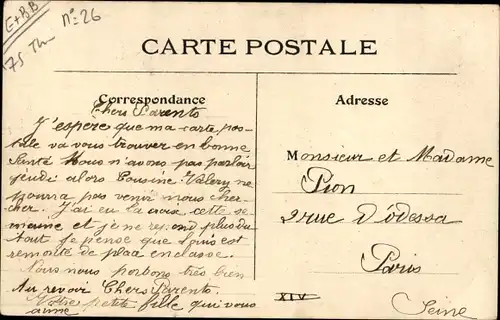 E+BB
75 Th
N° 26
CARTE POSTALE
Correspondance
Adresse
Chers Parents
J'espère que ma carte pos-
tale va vous trouver en bonne
Santé Nous n'avons pas parloir
jeudi alors Cousine Valery ne
pourra pas venir nous cher-
cher. J'ai eu la croix cette se-
maine et je ne répond plus du
tout je pense que Louis est
remonté de place en classe.
Nous nous portons très bien
Au revoir Chers Parents.
Votre petite fille qui vous
aime
Monsieur et Madame
Pion
2 rue d'Odessa
Paris
XIV
Seine